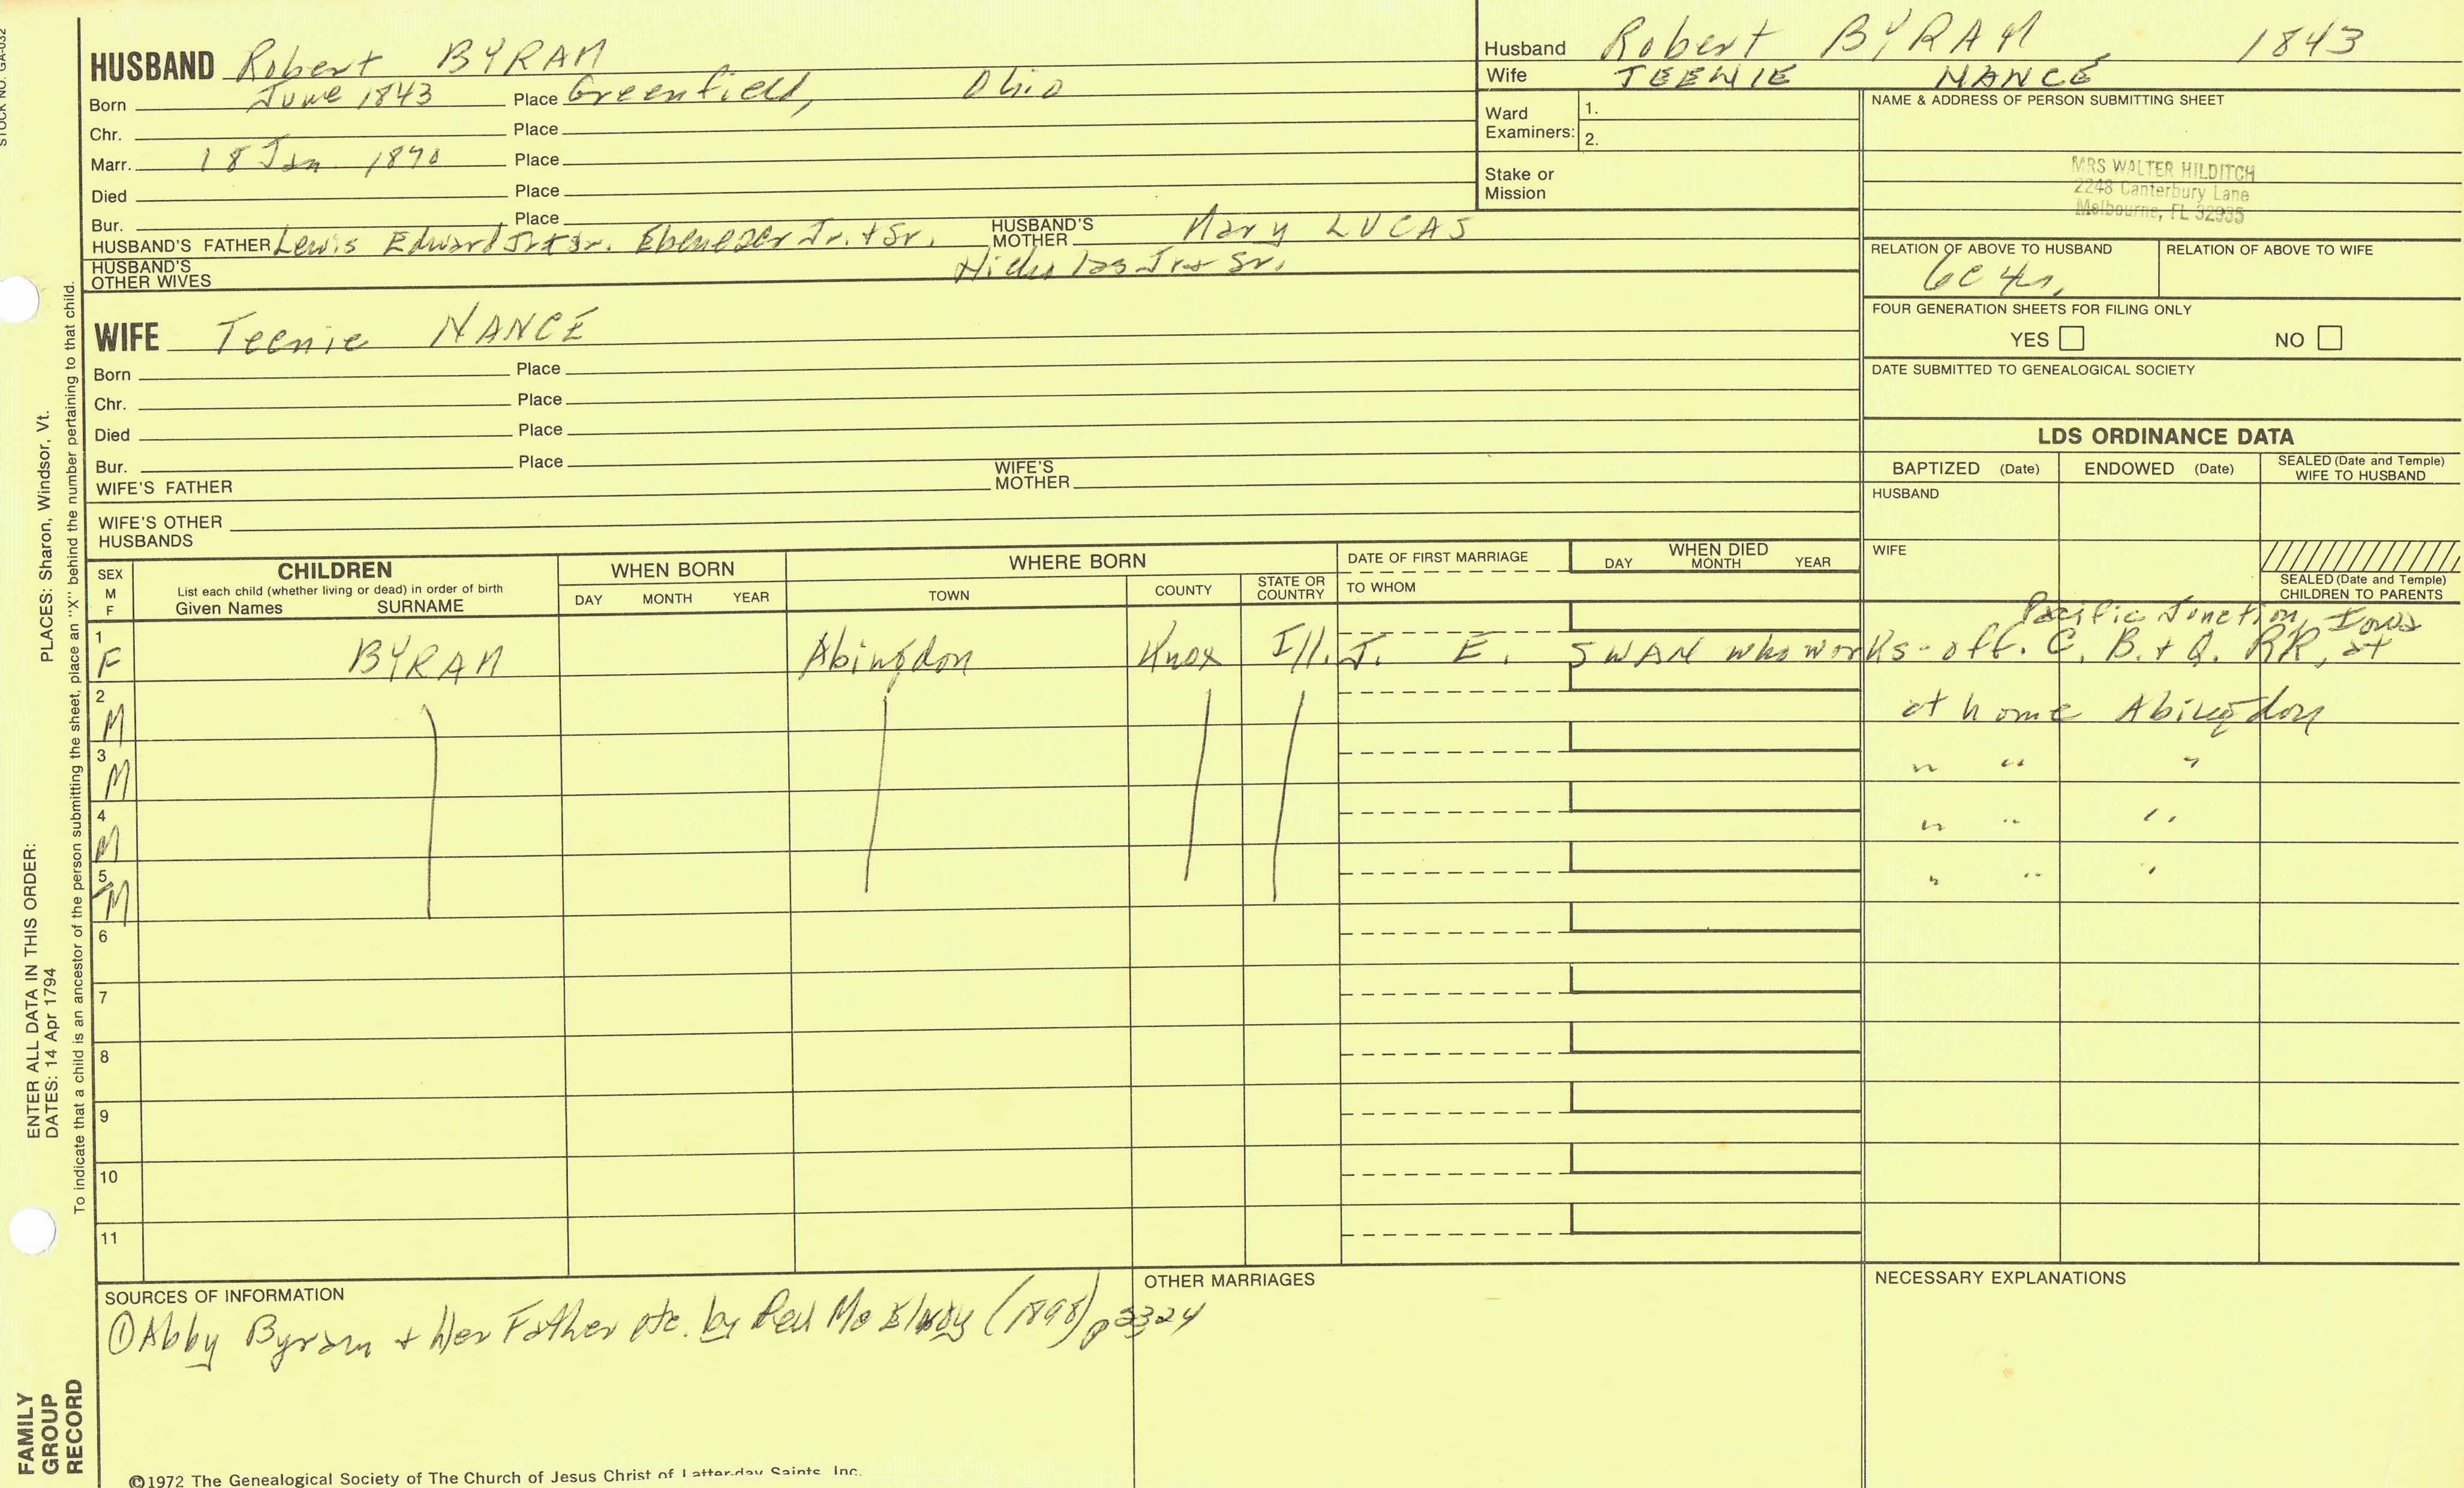 STOCK NO. GA-032
HUSBAND Robert BYRAM
Born June 1843 Place Greenfield, Ohio
Chr. Place
Marr. 18 Jan 1870 Place
Died Place
Bur. Place
HUSBAND'S FATHER Lewis Edward Jr + Sr. Ebenezer Jr. + Sr. HUSBAND'S MOTHER Mary LUCAS
HUSBAND'S OTHER WIVES Nicholas Jr + Sr.
Husband Robert BYRAM 1843
Wife TEENIE NANCE
Ward Examiners: 1.
2.
Stake or Mission
NAME & ADDRESS OF PERSON SUBMITTING SHEET
MRS WALTER HILDITCH
2248 Canterbury Lane
Melbourne, FL 32935
RELATION OF ABOVE TO HUSBAND RELATION OF ABOVE TO WIFE
6C 4r.
FOUR GENERATION SHEETS FOR FILING ONLY
YES NO
DATE SUBMITTED TO GENEALOGICAL SOCIETY
WIFE Teenie NANCE
Born Place
Chr. Place
Died Place
Bur. Place
WIFE'S FATHER WIFE'S MOTHER
WIFE'S OTHER HUSBANDS
LDS ORDINANCE DATA
BAPTIZED (Date) ENDOWED (Date) SEALED (Date and Temple) WIFE TO HUSBAND
HUSBAND
WIFE
SEALED (Date and Temple) CHILDREN TO PARENTS
SEX M F
CHILDREN
List each child (whether living or dead) in order of birth
Given Names SURNAME
WHEN BORN
DAY MONTH YEAR
WHERE BORN
TOWN COUNTY STATE OR COUNTRY
DATE OF FIRST MARRIAGE
TO WHOM
WHEN DIED
DAY MONTH YEAR
Pacific Junction, Iowa
1 F BYRAM Abingdon Knox Ill. J. E. SWAN who works - off. C. B. + Q. RR, at
2 M at home Abingdon
3 M " " "
4 M " " "
5 M " " "
6
7
8
9
10
11
SOURCES OF INFORMATION
① Abby Byram + Her Father etc. by Rev McElroy (1898) p 3324
OTHER MARRIAGES
NECESSARY EXPLANATIONS
©1972 The Genealogical Society of The Church of Jesus Christ of Latter-day Saints, Inc.
ENTER ALL DATA IN THIS ORDER:
DATES: 14 Apr 1794
PLACES: Sharon, Windsor, Vt.
To indicate that a child is an ancestor of the person submitting the sheet, place an "X" behind the number pertaining to that child.
FAMILY
GROUP
RECORD